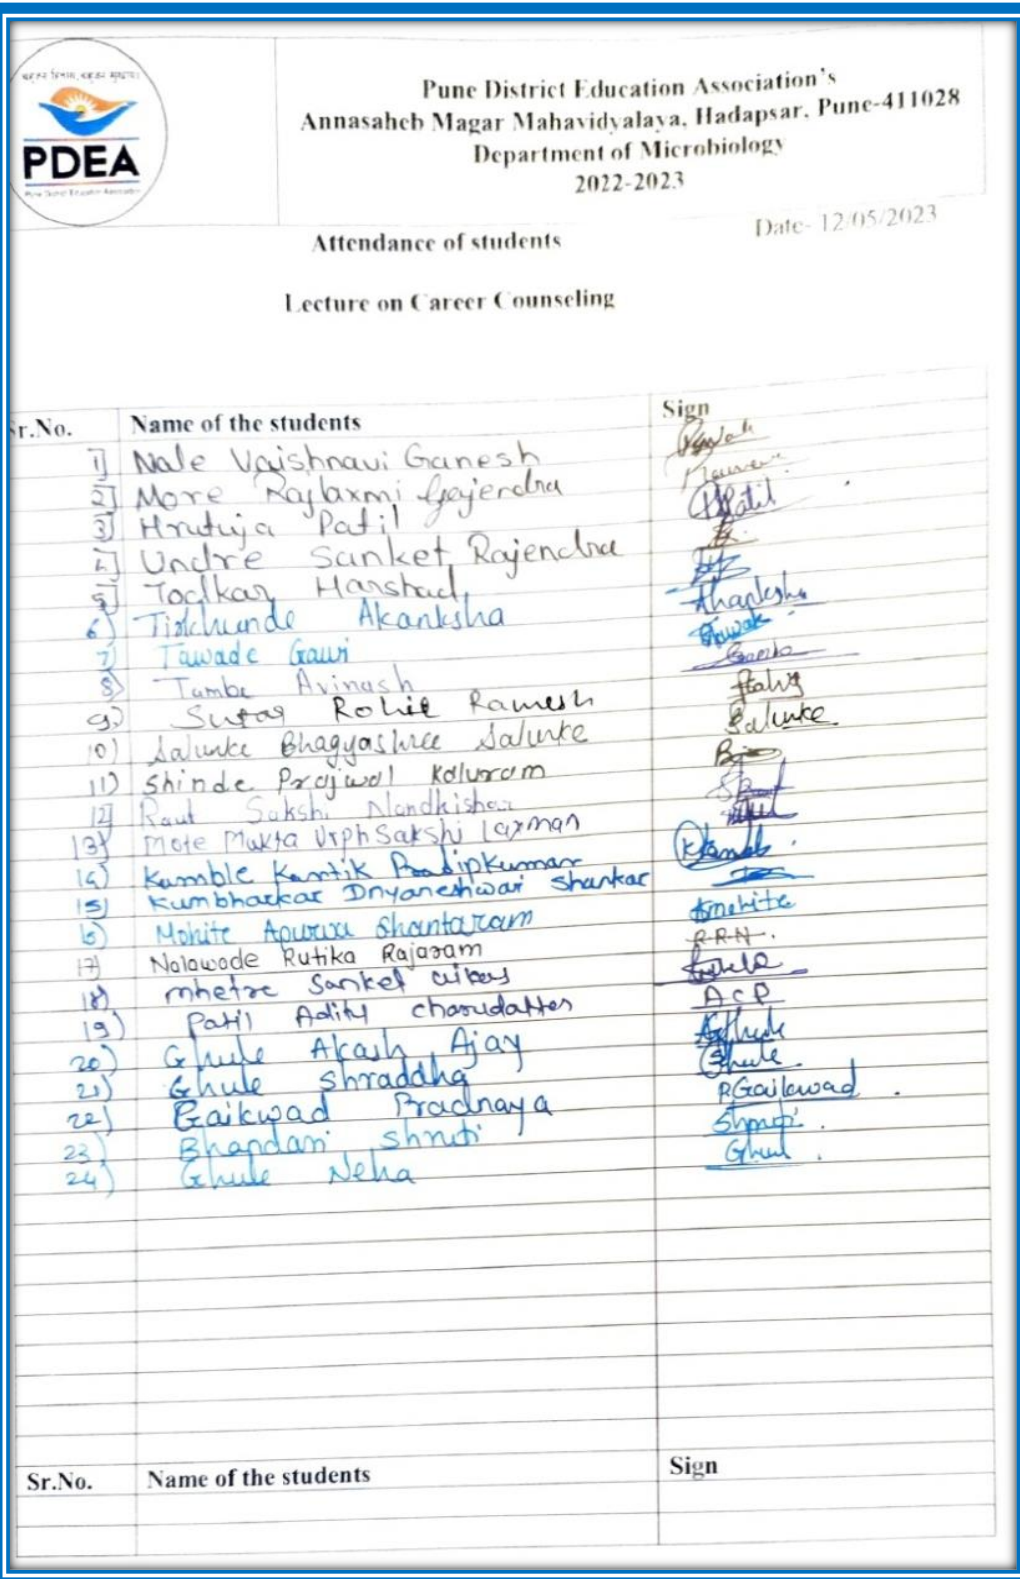 PDEA
Pune District Education Association
Pune District Education Association's
Annasaheb Magar Mahavidyalaya, Hadapsar, Pune-411028
Department of Microbiology
2022-2023
Date- 12/05/2023
Attendance of students
Lecture on Career Counseling
Sr.No. Name of the students Sign
1] Nale Vaishnavi Ganesh
2] More Rajlaxmi Gajendra
3] Hrutuja Patil HPatil
4] Undre Sanket Rajendra
5] Todkar Harshad
6) Tirkhunde Akanksha Akanksha
7) Tawade Gauri
8) Tambe Avinash
9) Sutar Rohit Ramesh
10) Salunke Bhagyashree Salunke Salunke
11) Shinde Prajwal Kaluram
12] Raut Sakshi Nandkishor
13) Mote Mukta Urph Sakshi Laxman
14) Kamble Kartik Pradipkumar
15) Kumbharkar Dnyaneshwari Shankar
16) Mohite Apurva Shantaram Amohite
17) Nalawade Rutika Rajaram R.R.N.
18) mhetre Sanket
19) Patil Aditi charudatta ACP
20) Ghule Akash Ajay AGhule
21) Ghule Shraddha Ghule
22) Gaikwad Pradnaya PGaikwad
23) Bhandari Shruti Shruti
24) Ghule Neha Ghul
Sr.No. Name of the students Sign